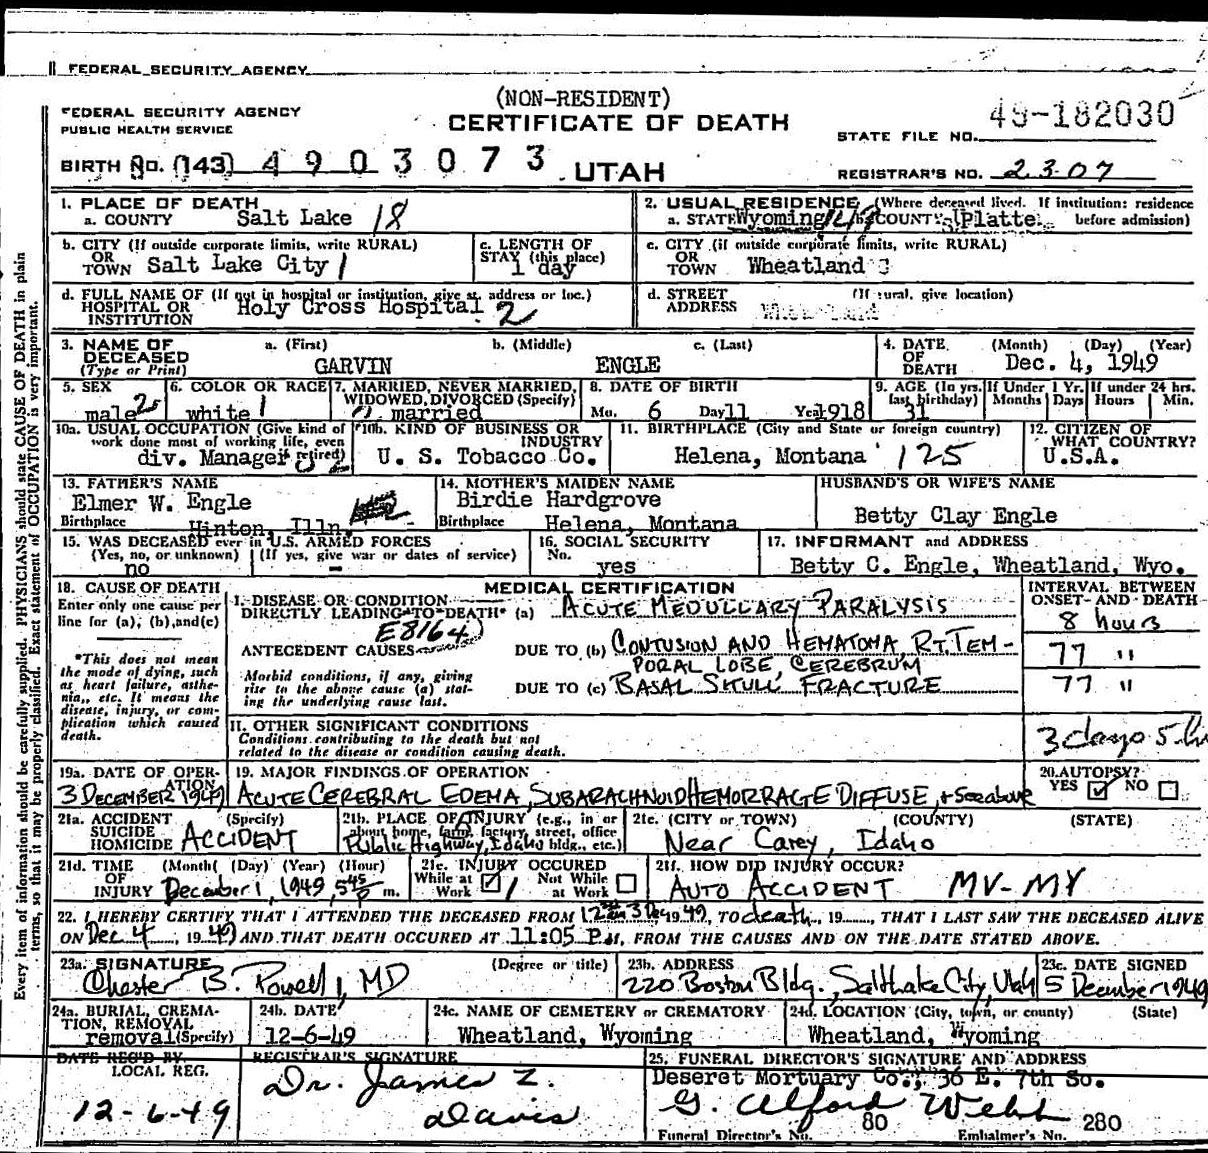 FEDERAL SECURITY AGENCY
(NON-RESIDENT)
FEDERAL SECURITY AGENCY
PUBLIC HEALTH SERVICE
CERTIFICATE OF DEATH
49-182030
STATE FILE NO.
BIRTH No. (143) 4903073
UTAH
REGISTRAR'S NO. 2307
1. PLACE OF DEATH
a. COUNTY Salt Lake 18
2. USUAL RESIDENCE (Where deceased lived. If institution: residence before admission)
a. STATE Wyoming b. COUNTY Platte
b. CITY (If outside corporate limits, write RURAL)
OR TOWN Salt Lake City 1
c. LENGTH OF STAY (this place)
1 day
c. CITY (if outside corporate limits, write RURAL)
OR TOWN Wheatland
d. FULL NAME OF (If not in hospital or institution, give st. address or loc.)
HOSPITAL OR INSTITUTION Holy Cross Hospital 2
d. STREET ADDRESS (If rural, give location)
3. NAME OF DECEASED (Type or Print)
a. (First) b. (Middle) c. (Last)
GARVIN ENGLE
4. DATE OF DEATH (Month) (Day) (Year)
Dec. 4, 1949
5. SEX
male
6. COLOR OR RACE
white 1
7. MARRIED, NEVER MARRIED, WIDOWED, DIVORCED (Specify)
married
8. DATE OF BIRTH
Mo. 6 Day 11 Year 1918
9. AGE (In yrs. last birthday)
31
If Under 1 Yr. Months Days
If under 24 hrs. Hours Min.
10a. USUAL OCCUPATION (Give kind of work done most of working life, even if retired)
div. Manager
10b. KIND OF BUSINESS OR INDUSTRY
U. S. Tobacco Co.
11. BIRTHPLACE (City and State or foreign country)
Helena, Montana 125
12. CITIZEN OF WHAT COUNTRY?
U.S.A.
13. FATHER'S NAME
Elmer W. Engle
Birthplace Hinton, Illn.
14. MOTHER'S MAIDEN NAME
Birdie Hardgrove
Birthplace Helena, Montana
HUSBAND'S OR WIFE'S NAME
Betty Clay Engle
15. WAS DECEASED ever in U.S. ARMED FORCES
(Yes, no, or unknown) (If yes, give war or dates of service)
no -
16. SOCIAL SECURITY No.
yes
17. INFORMANT and ADDRESS
Betty C. Engle, Wheatland, Wyo.
18. CAUSE OF DEATH
Enter only one cause per line for (a), (b), and (c)
*This does not mean the mode of dying, such as heart failure, asthenia, etc. It means the disease, injury, or complication which caused death.
MEDICAL CERTIFICATION
INTERVAL BETWEEN ONSET AND DEATH
I. DISEASE OR CONDITION DIRECTLY LEADING TO DEATH* (a) ACUTE MEDULLARY PARALYSIS
8 hours
E8164
ANTECEDENT CAUSES
DUE TO (b) CONTUSION AND HEMATOMA, RT. TEM-
PORAL LOBE, CEREBRUM
77 "
Morbid conditions, if any, giving rise to the above cause (a) stating the underlying cause last.
DUE TO (c) BASAL SKULL FRACTURE
77 "
II. OTHER SIGNIFICANT CONDITIONS
Conditions contributing to the death but not related to the disease or condition causing death.
3 days 5 hr
19a. DATE OF OPERATION
3 DECEMBER 1949
19. MAJOR FINDINGS OF OPERATION
ACUTE CEREBRAL EDEMA, SUBARACHNOID HEMORRAGE DIFFUSE, + See above
20. AUTOPSY?
YES ✓ NO
21a. ACCIDENT SUICIDE HOMICIDE (Specify)
ACCIDENT
21b. PLACE OF INJURY (e.g., in or about home, farm, factory, street, office bldg., etc.)
Public Highway, Idaho
21c. (CITY or TOWN) (COUNTY) (STATE)
Near Carey, Idaho
21d. TIME OF INJURY (Month) (Day) (Year) (Hour)
December 1, 1949, 5 45 P m.
21e. INJURY OCCURED
While at Work ✓ Not While at Work
21f. HOW DID INJURY OCCUR?
AUTO ACCIDENT MV-MV
22. I HEREBY CERTIFY THAT I ATTENDED THE DECEASED FROM 3 Dec, 1949, TO death, 19, THAT I LAST SAW THE DECEASED ALIVE
ON Dec 4, 1949 AND THAT DEATH OCCURED AT 11:05 P.M, FROM THE CAUSES AND ON THE DATE STATED ABOVE.
23a. SIGNATURE (Degree or title)
Chester B. Powell, MD
23b. ADDRESS
220 Boston Bldg., Salt Lake City, Utah
23c. DATE SIGNED
5 December 1949
24a. BURIAL, CREMATION, REMOVAL (Specify)
removal
24b. DATE
12-6-49
24c. NAME OF CEMETERY or CREMATORY
Wheatland, Wyoming
24d. LOCATION (City, town, or county) (State)
Wheatland, Wyoming
DATE REC'D BY LOCAL REG.
12-6-49
REGISTRAR'S SIGNATURE
Dr. James Z. Davis
25. FUNERAL DIRECTOR'S SIGNATURE AND ADDRESS
Deseret Mortuary Co., 36 E. 7th So.
G. Alford Webb
Funeral Director's No. 80 Embalmer's No. 280
Every item of information should be carefully supplied. PHYSICIANS should state CAUSE OF DEATH in plain
terms, so that it may be properly classified. Exact statement of OCCUPATION is very important.